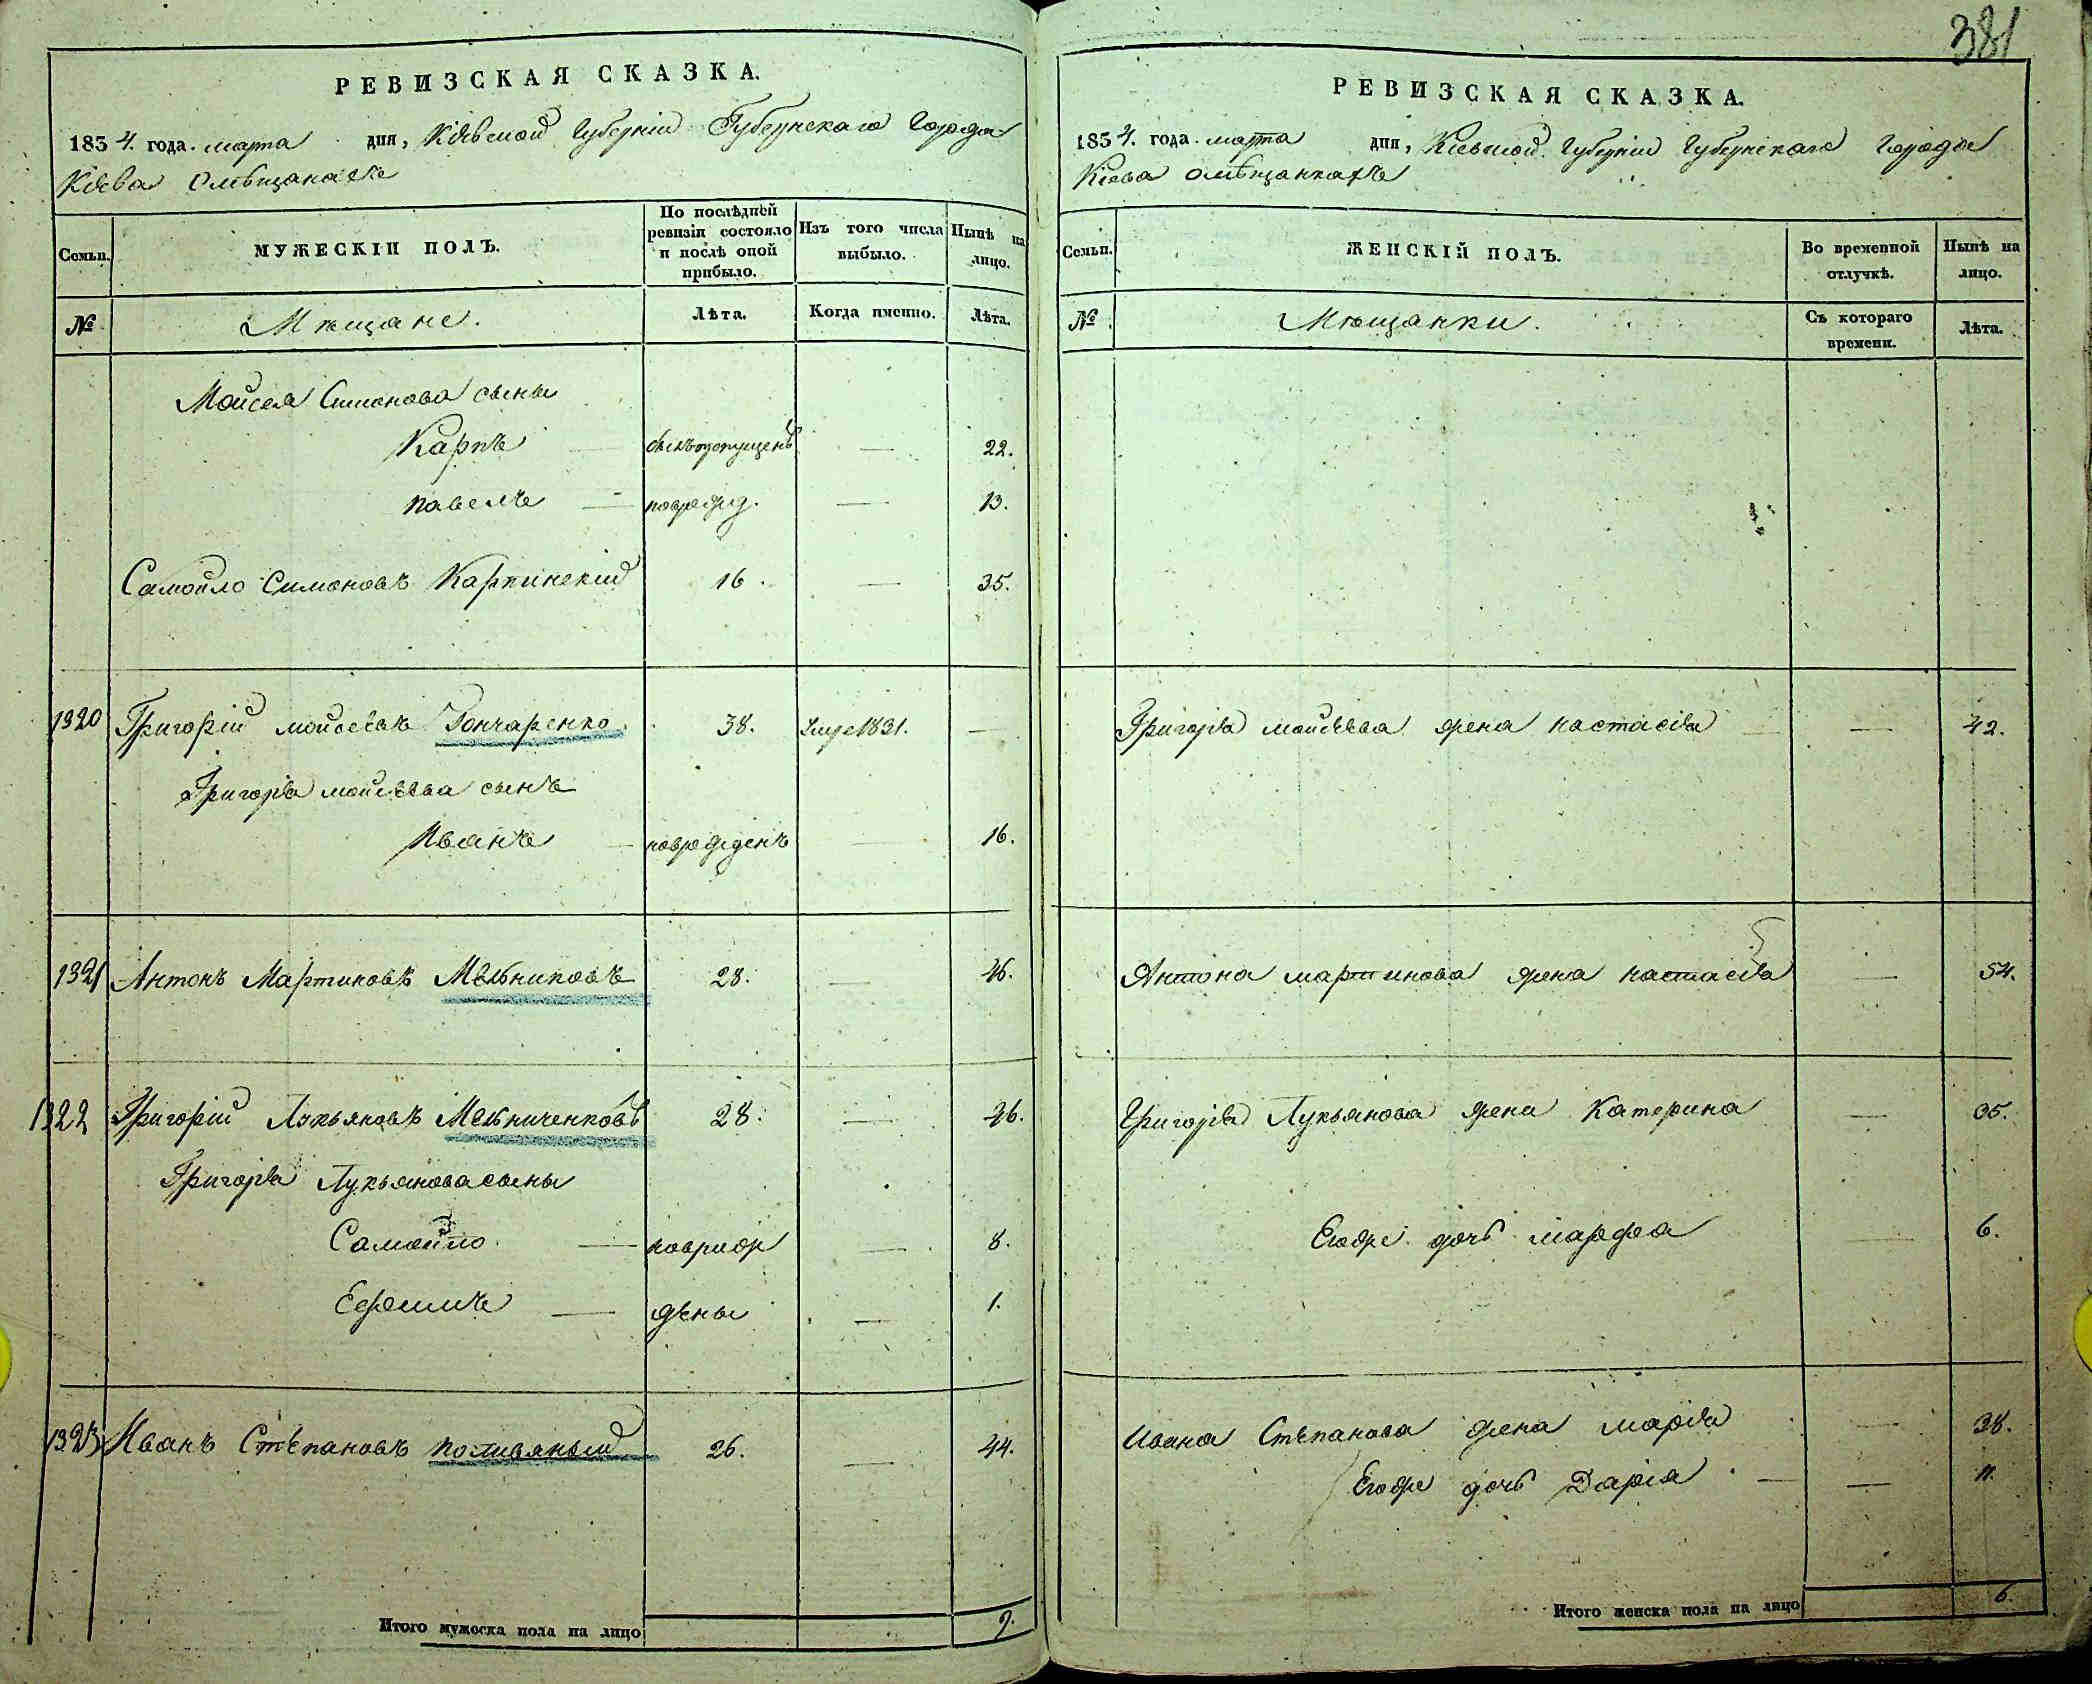 381
РЕВИЗСКАЯ СКАЗКА.
1854. года. марта дня, Кіевской Губерніи Губернскаго Города
Кіева Омѣщанахъ
Семьи.
МУЖЕСКІЙ ПОЛЪ.
По послѣдней ревизіи состояло и послѣ оной прибыло.
Изъ того числа выбыло.
Нынѣ на лицо.
№
Мѣщане.
Лѣта.
Когда именно.
Лѣта.
Мойсея Симонова сыны
Карпъ — былъ пропущенъ — 22.
Павелъ — поврежд. — 13.
Самойло Симоновъ Карпинскій 16. — 35.
1320 Григорій Мойсѣевъ Гончаренко 38. 1831. —
Григорія Мойсѣева сынъ
Иванъ — поврежденъ — 16.
1321 Антонъ Мартиновъ Мельниковъ 28. — 46.
1322 Григорій Лукьяновъ Мельниченковъ 28. — 46.
Григорія Лукьянова сыны
Самойло — — 8.
Ефимъ — дены — 1.
1323 Иванъ Стѣпановъ Поливяный 26. — 44.
Итого мужеска пола на лицо 9.
РЕВИЗСКАЯ СКАЗКА.
1854. года. марта дня, Кіевской Губерніи Губернскаго Города
Кіева Омѣщанкахъ
Семьи.
ЖЕНСКІЙ ПОЛЪ.
Во временной отлучкѣ.
Нынѣ на лицо.
№
Мѣщанки.
Съ котораго времени.
Лѣта.
Григорія Мойсѣева жена Настасія — 42.
Антона Мартинова жена Настасія — 54.
Григорія Лукьянова жена Катерина — 35.
Егоже дочь Марфа — 6.
Ивана Стѣпанова жена Марія — 38.
Егоже дочь Дарія — 11.
Итого женска пола на лицо 6.